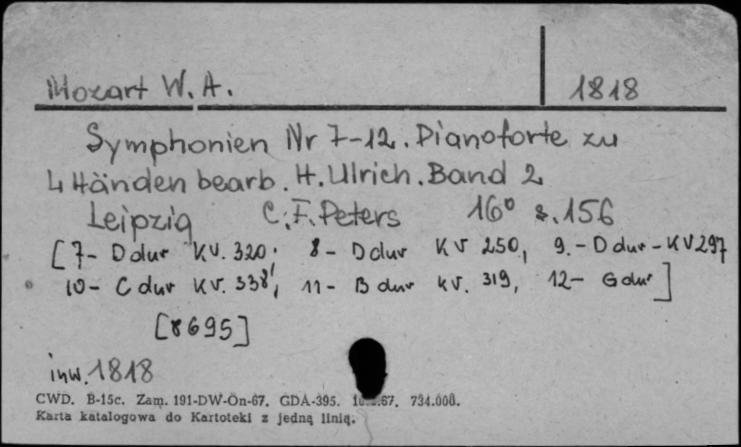 Mozart W. A. 1818
Symphonien Nr 7-12. Pianoforte zu
4 Händen bearb. H. Ulrich. Band 2
Leipzig C. F. Peters 16° s. 156
[7- D dur KV. 320; 8- D dur KV 250, 9.- D dur - KV 297
10- C dur KV. 338, 11- B dur KV. 319, 12- G dur]
[8695]
inw. 1818
CWD. B-15c. Zam. 191-DW-On-67. GDA-395. 67. 734.000.
Karta katalogowa do Kartoteki z jedną linią.